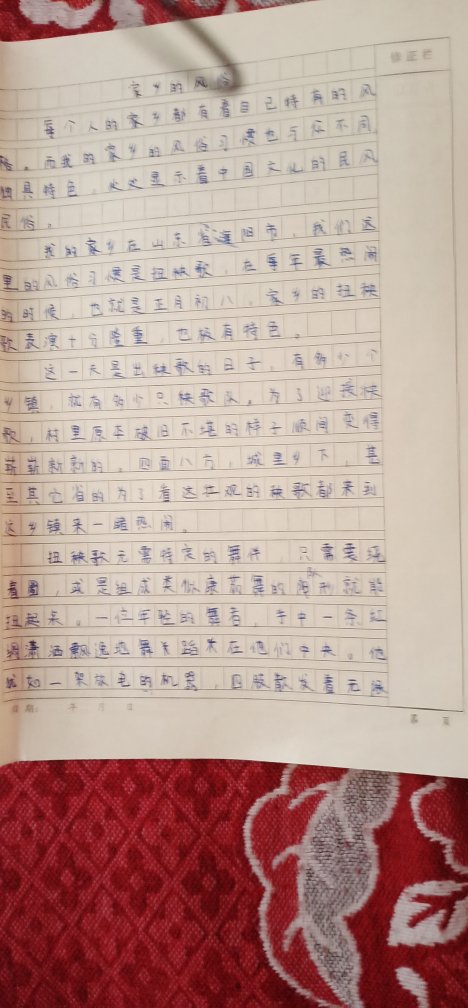 修正栏
家乡的风俗
每个人的家乡都有着自己特有的风
格。而我的家乡的风俗习惯也与众不同
独具特色,处处显示着中国文化的民风
民俗。
我的家乡在山东省海阳市,我们这
里的风俗习惯是扭秧歌,在每年最热闹
的时候,也就是正月初八,家乡的扭秧
歌表演十分隆重,也极有特色。
这一天是出秧歌的日子,有多少个
乡镇,就有多少只秧歌队。为了迎接秧
歌,村里原本破旧不堪的样子顺间变得
崭崭新新的。四面八方,城里乡下,甚
至其它省的为了看这壮观的秧歌都来到
这乡镇来一睹热闹。
扭秧歌无需特定的舞伴,只需要绕
着圈,或是组成类似康茄舞的队形就能
扭起来。一位年轻的舞者,手中一条红
绸潇洒飘逸地舞来蹈来在他们中央。他
就如一架放电的机器,四肢散发着无
日期: 年 月 日
第 页